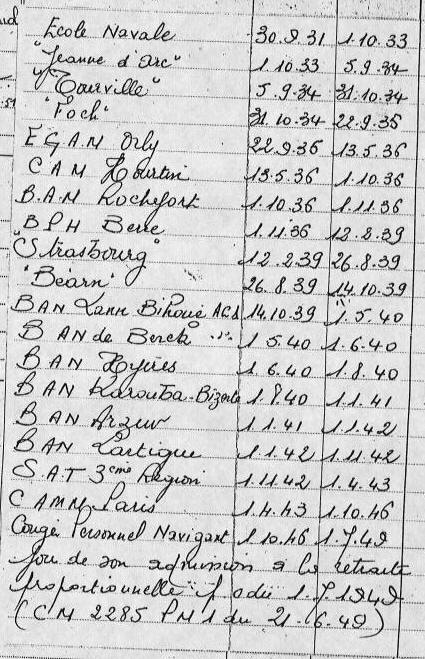 Ecole Navale 30.9.31 1.10.33
"Jeanne d'Arc" 1.10.33 5.9.34
"Tourville" 5.9.34 31.10.34
"Foch" 31.10.34 22.9.35
EGAN Orly 22.9.35 13.5.36
CAM Hourtin 13.5.36 1.10.36
B.A.N Rochefort 1.10.36 1.11.36
BPH Berre 1.11.36 12.2.39
"Strasbourg" 12.2.39 26.8.39
"Béarn" 26.8.39 14.10.39
BAN Lann Bihoué 14.10.39 1.5.40
BAN de Berck 1.5.40 1.6.40
BAN Hyères 1.6.40 1.8.40
BAN Karouba-Bizerte 1.8.40 1.1.41
BAN Arzew 1.1.41 1.1.42
BAN Lartigue 1.1.42 1.11.42
S.A.T 3eme Région 1.11.42 1.4.43
CAMN Paris 1.4.43 1.10.46
Congé Personnel Navigant 1.10.46 1.7.49
jour de son admission à la retraite
proportionnelle 1.7.1949
(CM 2285 PM1 du 21.6.49)